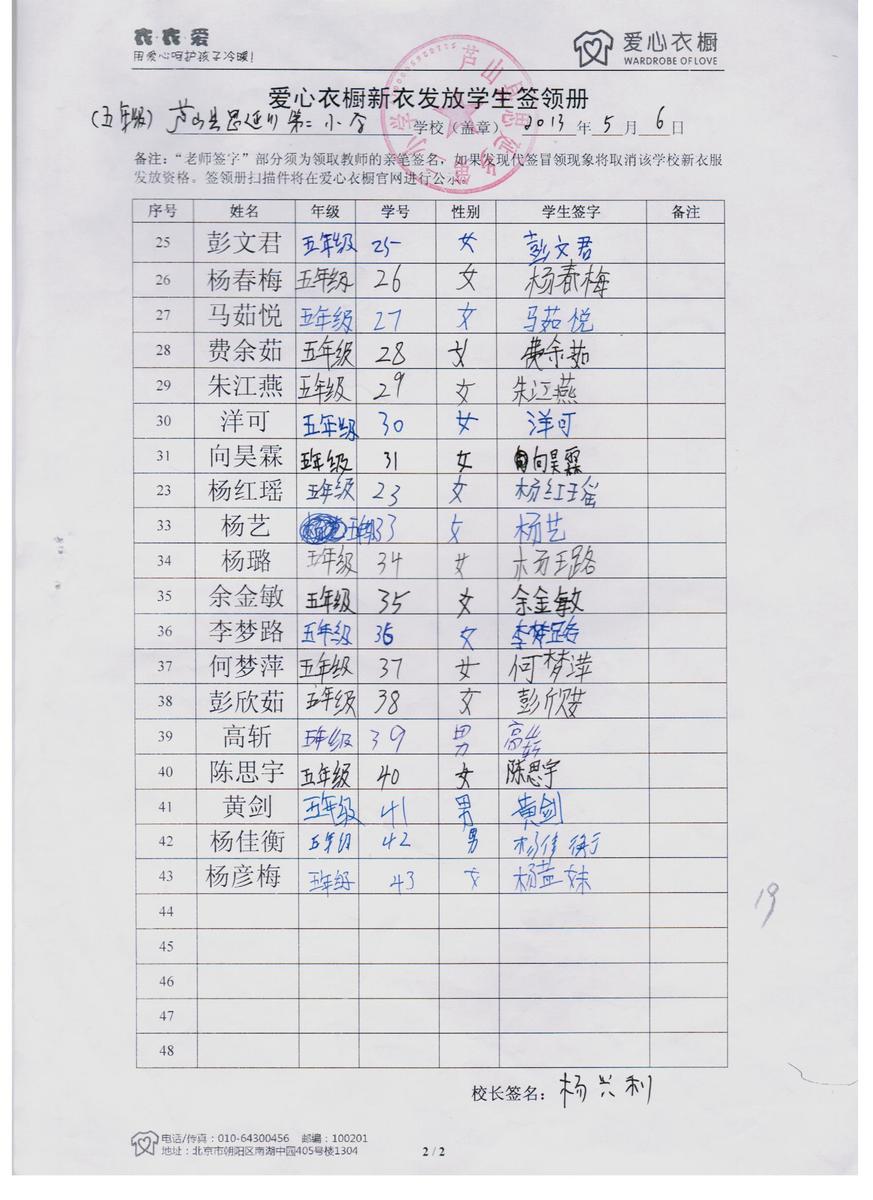 衣·衣·爱
用爱心呵护孩子冷暖!
爱心衣橱
WARDROBE OF LOVE
爱心衣橱新衣发放学生签领册
(五年级) 芦山县思延乡第二小学 学校（盖章） 2013 年 5 月 6 日
备注：“老师签字”部分须为领取教师的亲笔签名，如果发现代签冒领现象将取消该学校新衣服
发放资格。签领册扫描件将在爱心衣橱官网进行公示。
序号 姓名 年级 学号 性别 学生签字 备注
25 彭文君 五年级 25 女 彭文君
26 杨春梅 五年级 26 女 杨春梅
27 马茹悦 五年级 27 女 马茹悦
28 费余茹 五年级 28 女 费余茹
29 朱江燕 五年级 29 女 朱江燕
30 洋可 五年级 30 女 洋可
31 向昊霖 五年级 31 女 向昊霖
23 杨红瑶 五年级 23 女 杨红瑶
33 杨艺 五年级 33 女 杨艺
34 杨璐 五年级 34 女 杨璐
35 余金敏 五年级 35 女 余金敏
36 李梦路 五年级 36 女 李梦路
37 何梦萍 五年级 37 女 何梦萍
38 彭欣茹 五年级 38 女 彭欣茹
39 高斩 五年级 39 男 高
40 陈思宇 五年级 40 女 陈思宇
41 黄剑 五年级 41 男 黄剑
42 杨佳衡 五年级 42 男 杨佳衡
43 杨彦梅 五年级 43 女 杨
44
45
46
47
48
19
校长签名： 杨兴利
电话/传真：010-64300456 邮编：100201
地址：北京市朝阳区南湖中园405号楼1304
2 / 2